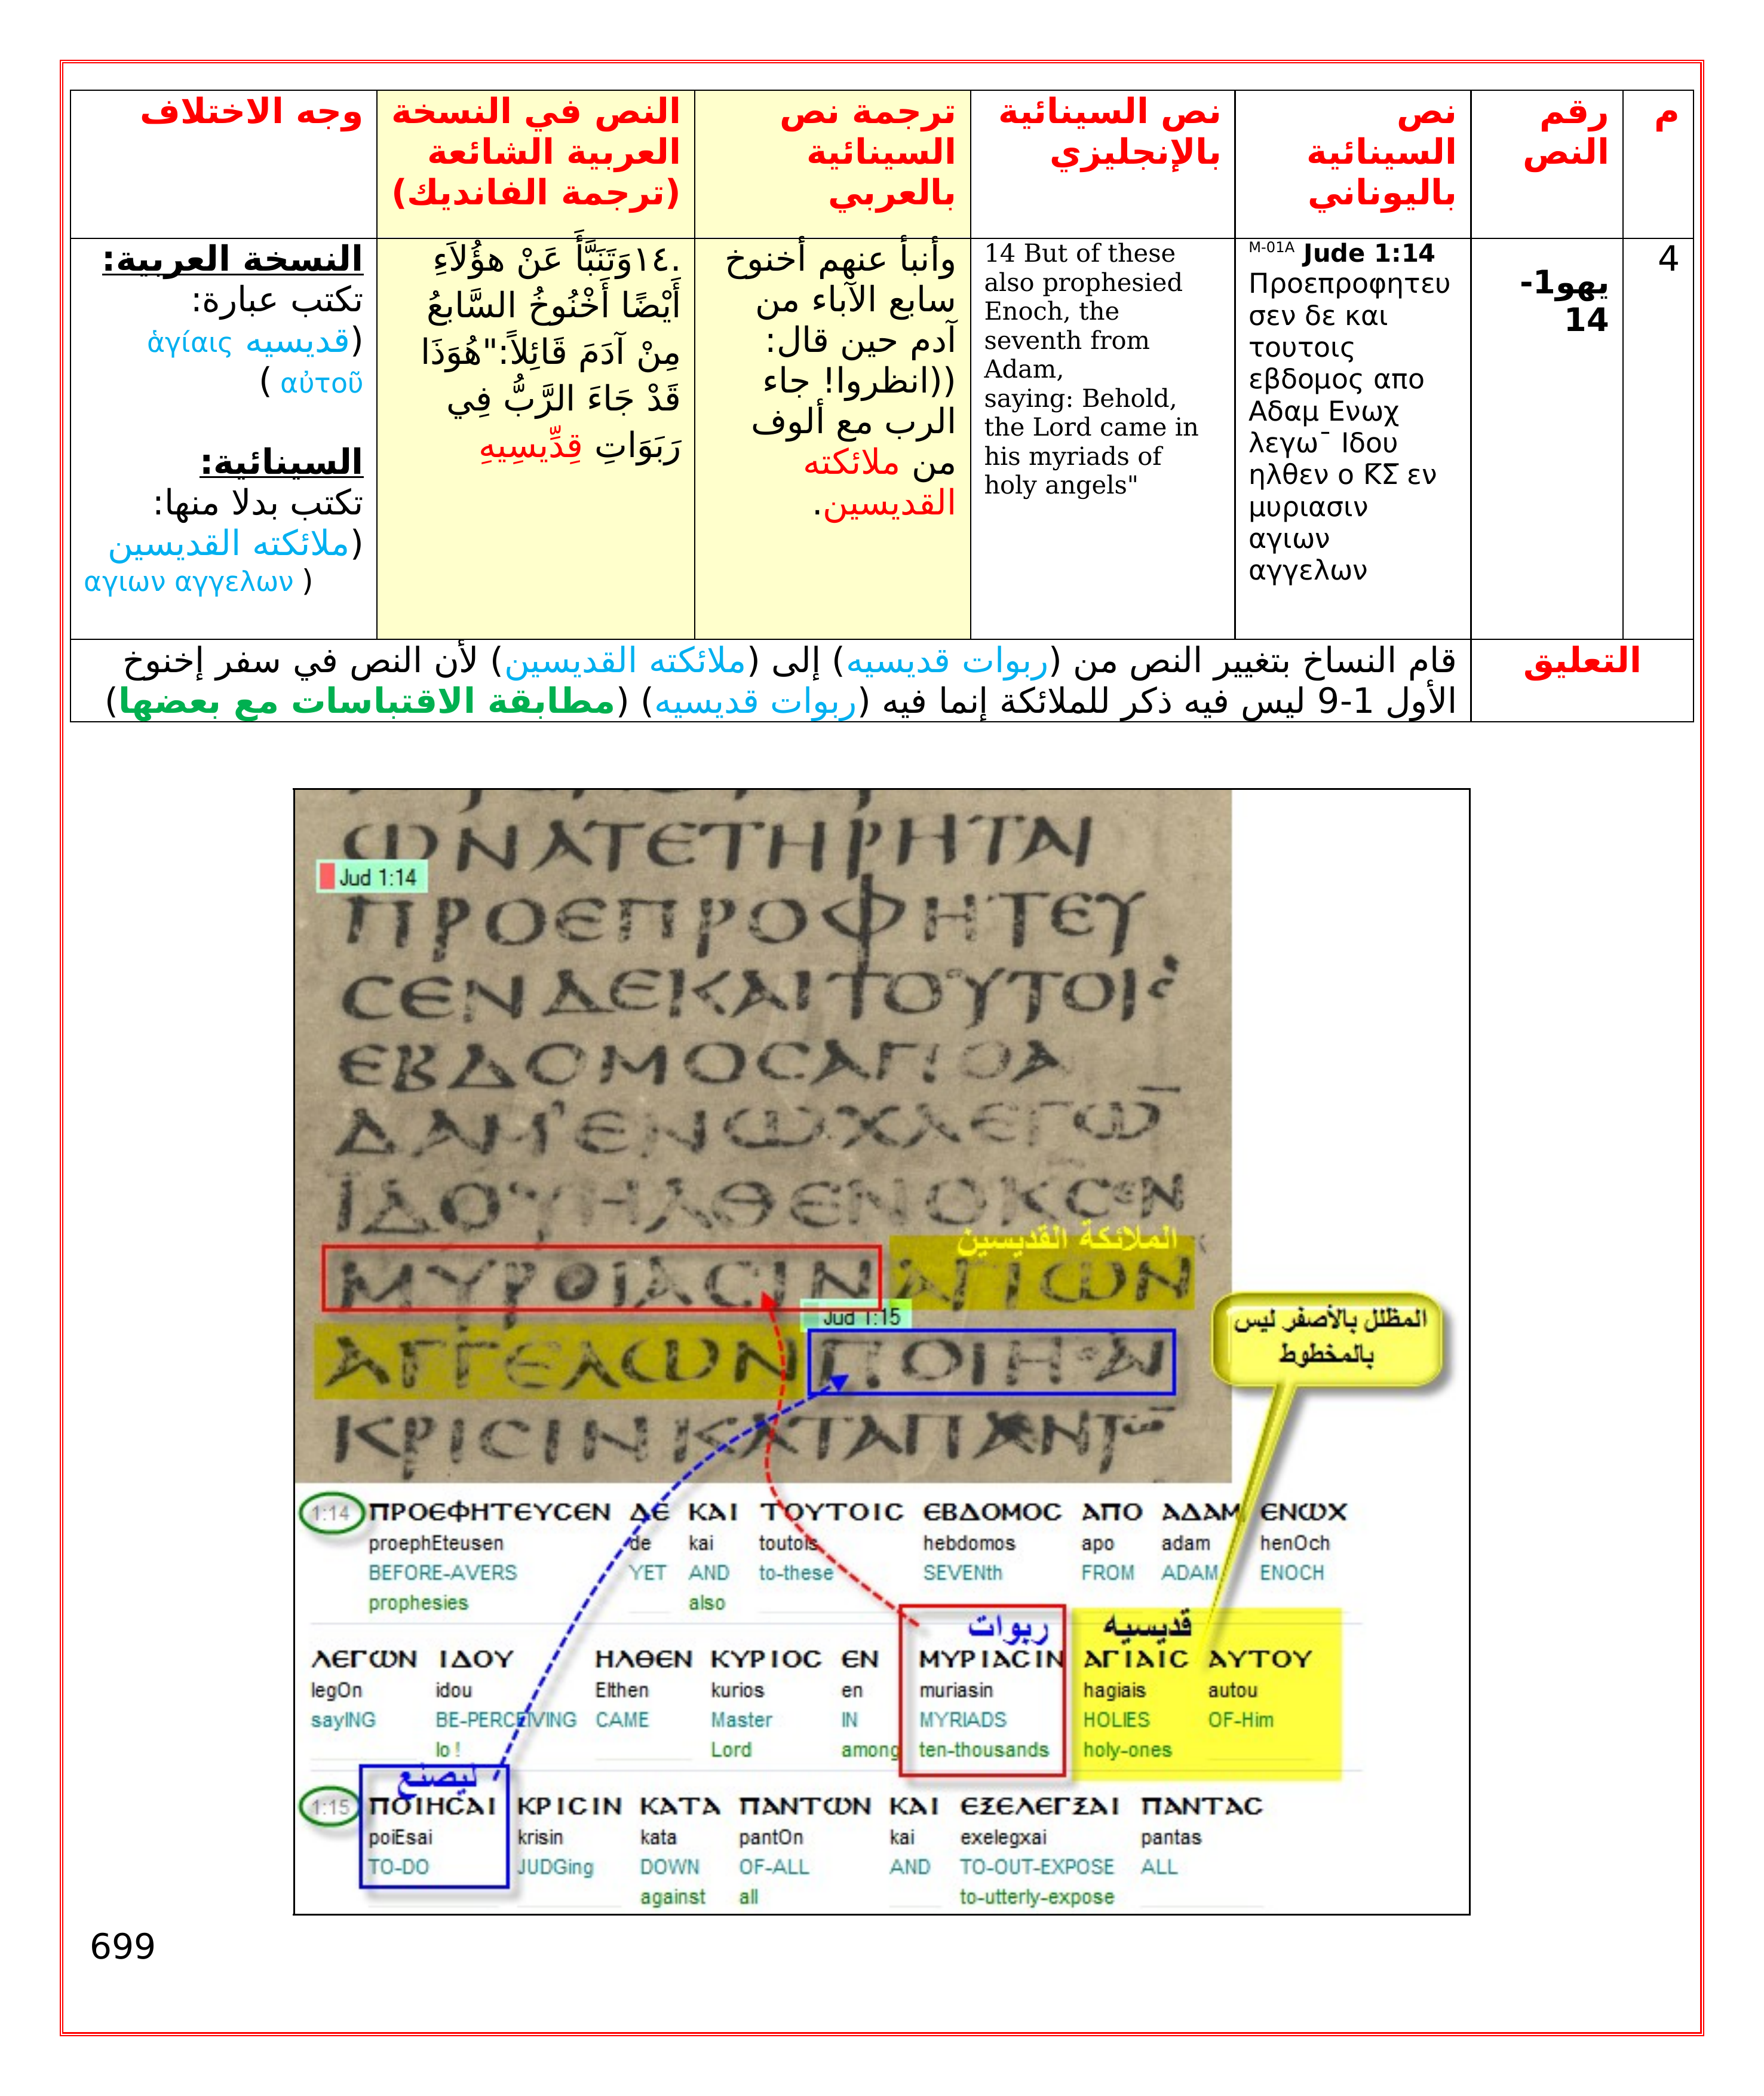 م
رقم
النص
نص
السينائية
باليوناني
نص السينائية
بالإنجليزي
ترجمة نص
السينائية
بالعربي
النص في النسخة
العربية الشائعة
(ترجمة الفانديك)
وجه الاختلاف
4
يهو1-
14
M-01A Jude 1:14
Προεπροφητευ
σεν δε και
τουτοις
εβδομος απο
Αδαμ Ενωχ
λεγω¯ Ιδου
ηλθεν ο Κ̅Σ̅ εν
μυριασιν
αγιων
αγγελων
14 But of these
also prophesied
Enoch, the
seventh from
Adam,
saying: Behold,
the Lord came in
his myriads of
holy angels"
وأنبأ عنهم أخنوخ
سابع الآباء من
آدم حين قال:
((انظروا! جاء
الرب مع ألوف
من ملائكته
القديسين.
.١٤وَتَنَبَّأَ عَنْ هؤُلاَءِ
أَيْضًا أَخْنُوخُ السَّابعُ
مِنْ آدَمَ قَائِلاً:"هُوَذَا
قَدْ جَاءَ الرَّبُّ فِي
رَبَوَاتِ قِدِّيسِيهِ
النسخة العربية:
تكتب عبارة:
(قديسيه ἁγίαις
αὐτοῦ )
السينائية:
تكتب بدلا منها:
(ملائكته القديسين
αγιων αγγελων )
التعليق
قام النساخ بتغيير النص من (ربوات قديسيه) إلى (ملائكته القديسين) لأن النص في سفر إخنوخ
الأول 1-9 ليس فيه ذكر للملائكة إنما فيه (ربوات قديسيه) (مطابقة الاقتباسات مع بعضها)
ⲰΝΑΤΕΤΗΡΗΤΑΙ
Jud 1:14
ΠΡΟΕΠΡΟΦΗΤΕΥ
ϹΕΝΔΕΚΑΙΤΟΥΤΟΙϹ
ΕΒΔΟΜΟϹΑΠΟΑ
ΔΑΜΕΝⲰΧΛΕΓⲰ̅
ΙΔΟΥΗΛΘΕΝΟΚϹΕΝ
الملائكة القديسين
ΜΥΡΟΙΑϹΙΝ ΑΓΙⲰΝ
Jud 1:15
المظلل بالأصفر ليس
بالمخطوط
ΑΓΓΕΛⲰΝ ΠΟΙΗϹΑΙ
ΚΡΙϹΙΝΚΑΤΑΠΑΝΤⲰ̅
1:14 ΠΡΟΕΦΗΤΕΥϹΕΝ ΔΕ ΚΑΙ ΤΟΥΤΟΙϹ ΕΒΔΟΜΟϹ ΑΠΟ ΑΔΑΜ ΕΝⲰΧ
proephEteusen de kai toutois hebdomos apo adam henOch
BEFORE-AVERS YET AND to-these SEVENth FROM ADAM ENOCH
prophesies also
ربوات قديسيه
ΛΕΓⲰΝ ΙΔΟΥ ΗΛΘΕΝ ΚΥΡΙΟϹ ΕΝ ΜΥΡΙΑϹΙΝ ΑΓΙΑΙϹ ΑΥΤΟΥ
legOn idou Elthen kurios en muriasin hagiais autou
sayING BE-PERCEIVING CAME Master IN MYRIADS HOLIES OF-Him
lo ! Lord among ten-thousands holy-ones
ليصنع
1:15 ΠΟΙΗϹΑΙ ΚΡΙϹΙΝ ΚΑΤΑ ΠΑΝΤⲰΝ ΚΑΙ ΕΞΕΛΕΓΞΑΙ ΠΑΝΤΑϹ
poiEsai krisin kata pantOn kai exelegxai pantas
TO-DO JUDGing DOWN OF-ALL AND TO-OUT-EXPOSE ALL
against all to-utterly-expose
699